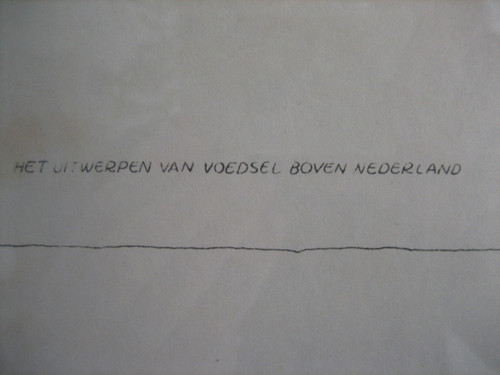 HET UITWERPEN VAN VOEDSEL BOVEN NEDERLAND